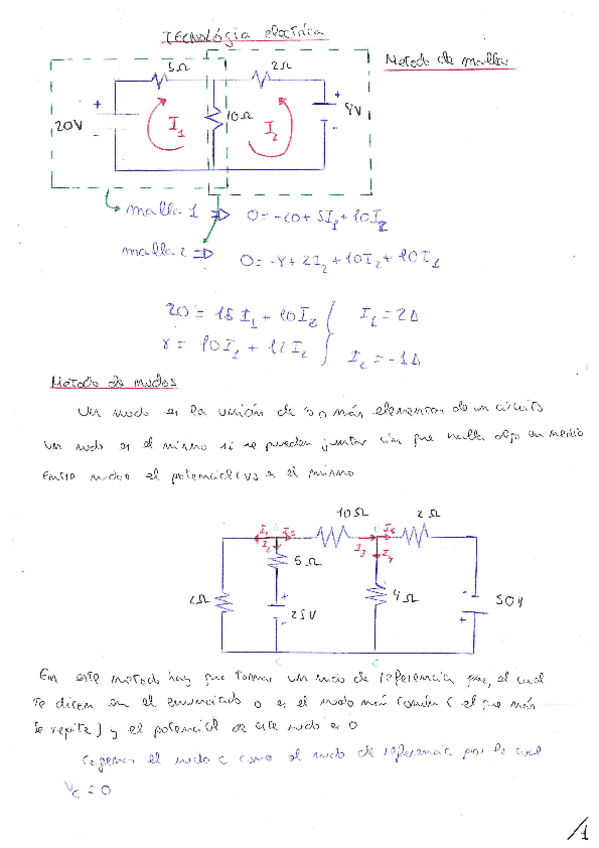 TECNOLÓgia electrica
Metodo de mallas
5Ω 2Ω
20V + - I1 10Ω I2 + - 8V
malla 1 ⇒ 0=-20+5I1+10I2
malla 2 ⇒ 0=-8+2I2+10I2+10I1
20 = 15I1 + 10I2 I1 = 2A
8 = 10I1 + 12I2 I2 = -1A
Metodo de nudos
Un nudo es la unión de 3 o más elementos de un circuito
un nudo es el mismo si se pueden juntar sin que halla algo en medio
Entre nudos el potencial (V) es el mismo
10Ω 2Ω
I1 I2 I3 I4 I5
5Ω
2Ω + - 25V 4Ω - + 50V
C C
En este metodo hay que tomar un nudo de referencia que, el cual
te dicen en el enunciado o es el nudo más común (el que más
se repite) y el potencial de este nudo es 0
Cogemos el nudo C como el nudo de referencia por lo cual
Vc = 0
/1